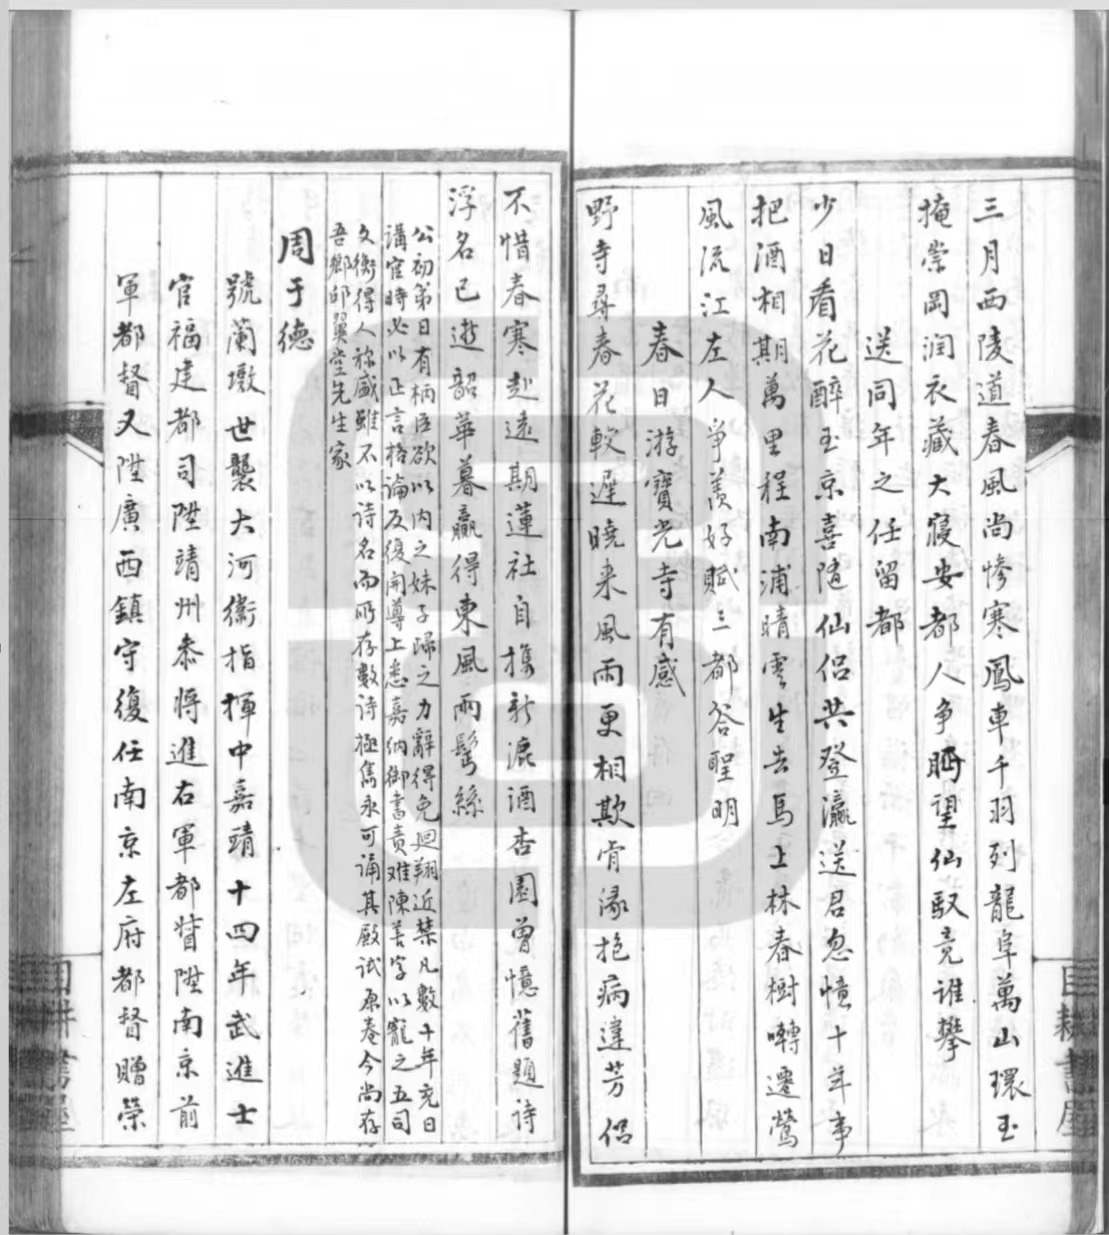 三月西陵道春風尚慘寒鳳車千羽列龍阜萬山環玉
掩崇岡潤衣藏大寢安都人爭眄望仙馭竟誰攀
送同年之任留都
少日看花醉玉京喜隨仙侶共登瀛送君忽憶十年事
把酒相期萬里程南浦晴雲生去馬上林春樹囀遷鶯
風流江左人爭羨好賦三都答聖明
春日游寶光寺有感
野寺尋春花較遲曉來風雨更相欺肯緣抱病違芳侶
不惜春寒赴遠期蓮社自攜新漉酒杏園曾憶舊題詩
浮名已逝韶華暮贏得東風兩鬢絲
公初第日有柄臣欲以內之妹子歸之力辭得免迴翔近禁凡數十年充日
講官時必以正言格論反復開導上悉嘉納御書責难陳善字以寵之五司
文衡得人称盛雖不以詩名而所存數詩極雋永可誦其殿试原卷今尚存
吾鄉邱翼堂先生家
周于德
號蘭墩世襲大河衛指揮中嘉靖十四年武進士
官福建都司陞靖州叅將進右軍都督陞南京前
軍都督又陞廣西鎮守復任南京左府都督贈榮